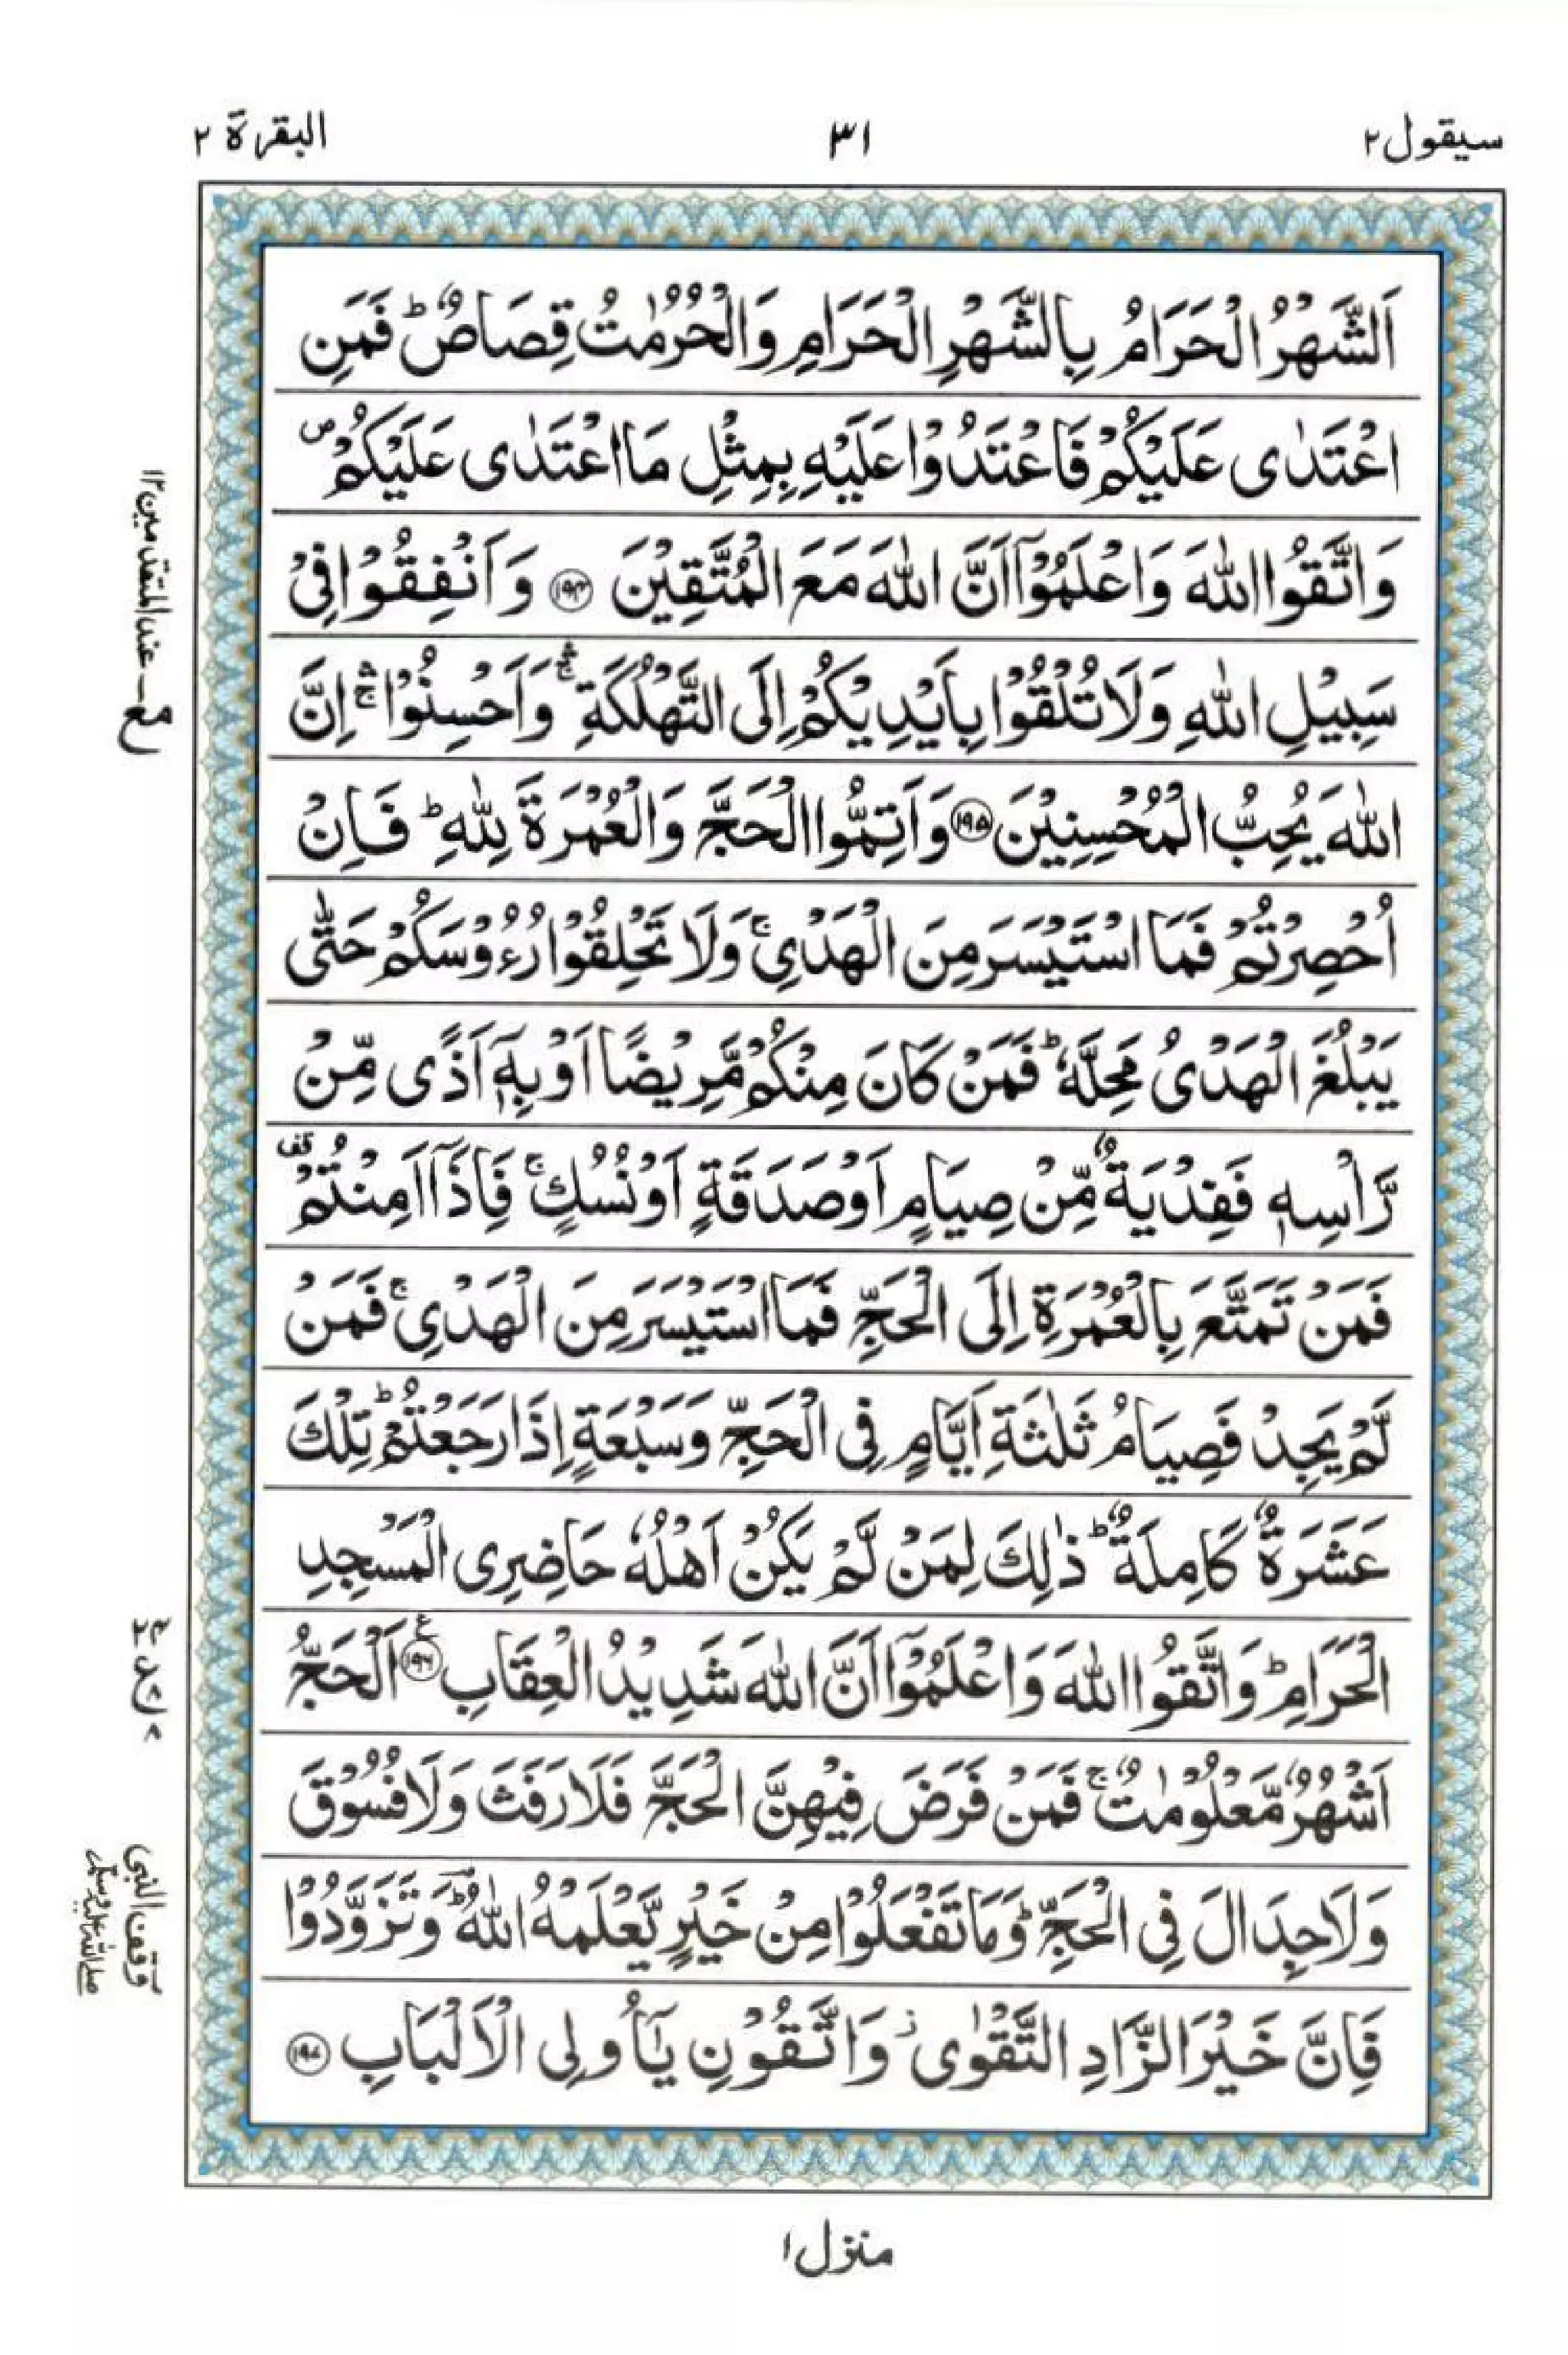 سيقول ٢
٣١
البقرة ٢
اَلشَّهْرُ الْحَرَامُ بِالشَّهْرِ الْحَرَامِ وَالْحُرُمٰتُ قِصَاصٌ ؕ فَمَنِ
اعْتَدٰى عَلَيْكُمْ فَاعْتَدُوْا عَلَيْهِ بِمِثْلِ مَا اعْتَدٰى عَلَيْكُمْ ۪
وَاتَّقُوا اللّٰهَ وَاعْلَمُوْۤا اَنَّ اللّٰهَ مَعَ الْمُتَّقِيْنَ ﴿۱۹۴﴾ وَاَنْفِقُوْا فِيْ
سَبِيْلِ اللّٰهِ وَلَا تُلْقُوْا بِاَيْدِيْكُمْ اِلَى التَّهْلُكَةِ ۛۚ وَاَحْسِنُوْا ۛۚ اِنَّ
اللّٰهَ يُحِبُّ الْمُحْسِنِيْنَ ﴿۱۹۵﴾ وَاَتِمُّوا الْحَجَّ وَالْعُمْرَةَ لِلّٰهِ ؕ فَاِنْ
اُحْصِرْتُمْ فَمَا اسْتَيْسَرَ مِنَ الْهَدْيِ ۚ وَلَا تَحْلِقُوْا رُءُوْسَكُمْ حَتّٰى
يَبْلُغَ الْهَدْىُ مَحِلَّهٗ ؕ فَمَنْ كَانَ مِنْكُمْ مَّرِيْضًا اَوْ بِهٖۤ اَذًى مِّنْ
رَّاْسِهٖ فَفِدْيَةٌ مِّنْ صِيَامٍ اَوْ صَدَقَةٍ اَوْ نُسُكٍ ۚ فَاِذَاۤ اَمِنْتُمْ قف
فَمَنْ تَمَتَّعَ بِالْعُمْرَةِ اِلَى الْحَجِّ فَمَا اسْتَيْسَرَ مِنَ الْهَدْيِ ۚ فَمَنْ
لَّمْ يَجِدْ فَصِيَامُ ثَلٰثَةِ اَيَّامٍ فِى الْحَجِّ وَسَبْعَةٍ اِذَا رَجَعْتُمْ ؕ تِلْكَ
عَشَرَةٌ كَامِلَةٌ ؕ ذٰلِكَ لِمَنْ لَّمْ يَكُنْ اَهْلُهٗ حَاضِرِى الْمَسْجِدِ
الْحَرَامِ ؕ وَاتَّقُوا اللّٰهَ وَاعْلَمُوْۤا اَنَّ اللّٰهَ شَدِيْدُ الْعِقَابِ ﴿۱۹۶﴾ ع اَلْحَجُّ
اَشْهُرٌ مَّعْلُوْمٰتٌ ۚ فَمَنْ فَرَضَ فِيْهِنَّ الْحَجَّ فَلَا رَفَثَ وَلَا فُسُوْقَ
وَلَا جِدَالَ فِى الْحَجِّ ؕ وَمَا تَفْعَلُوْا مِنْ خَيْرٍ يَّعْلَمْهُ اللّٰهُ ؔؕ وَتَزَوَّدُوْا
فَاِنَّ خَيْرَ الزَّادِ التَّقْوٰى ؗ وَاتَّقُوْنِ يٰۤاُولِى الْاَلْبَابِ ﴿۱۹۷﴾
عند المتقدمين ١٢
وقف النبى
صلى الله عليه وسلم
منزل ١